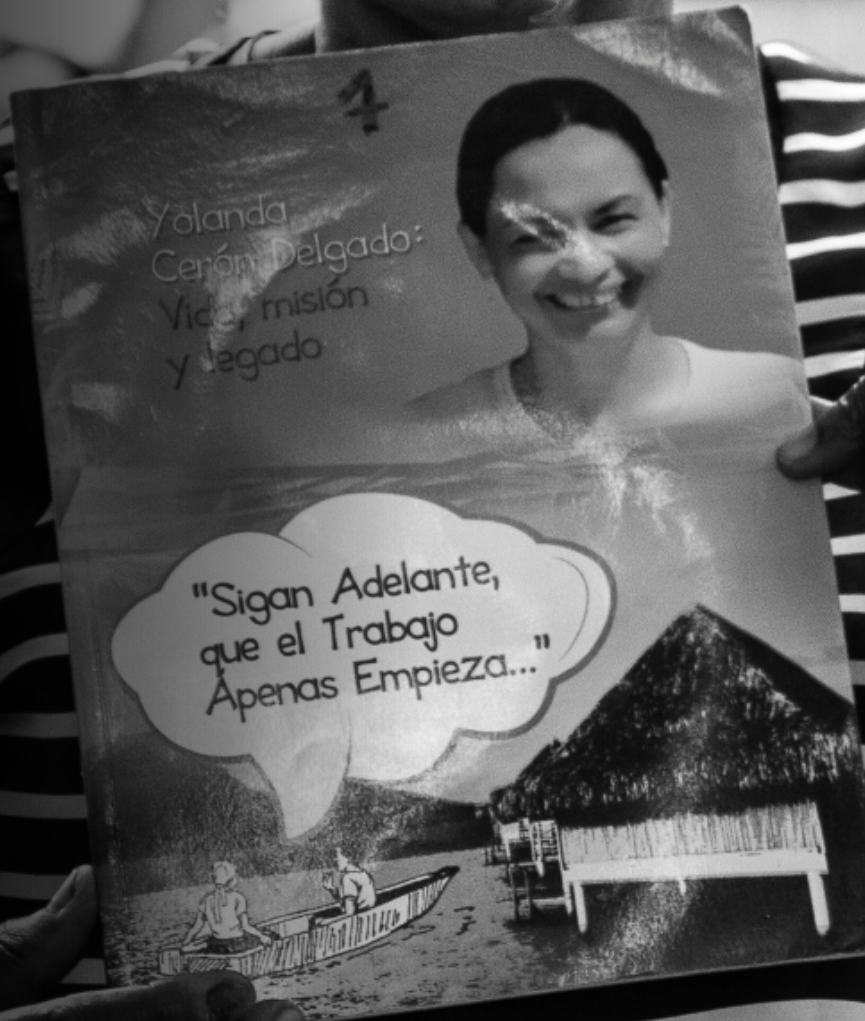 1
Yolanda
Cerón Delgado:
Vida, misión
y legado
"Sigan Adelante,
que el Trabajo
Apenas Empieza..."